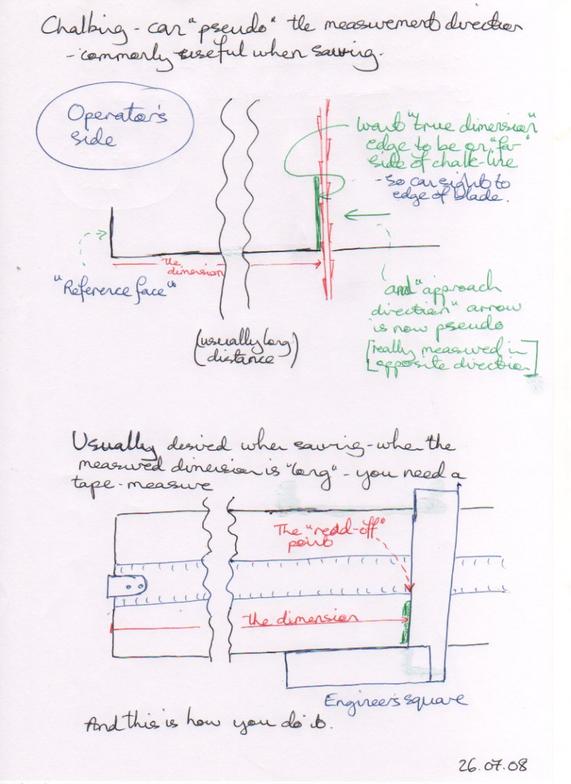 Chalking - can "pseudo" the measurement direction
- commonly useful when sawing.
Operator's
side
want "true dimension"
edge to be on "far"
side of chalk-line
- so can sight to
edge of blade.
the
dimension
"Reference face"
and "approach
direction" arrow
is now pseudo
[really measured in
opposite direction]
(usually long)
(distance)
Usually desired when sawing - when the
measured dimension is "long" - you need a
tape-measure
The "read-off"
point
the dimension
Engineer's square
And this is how you do it.
26.07.08